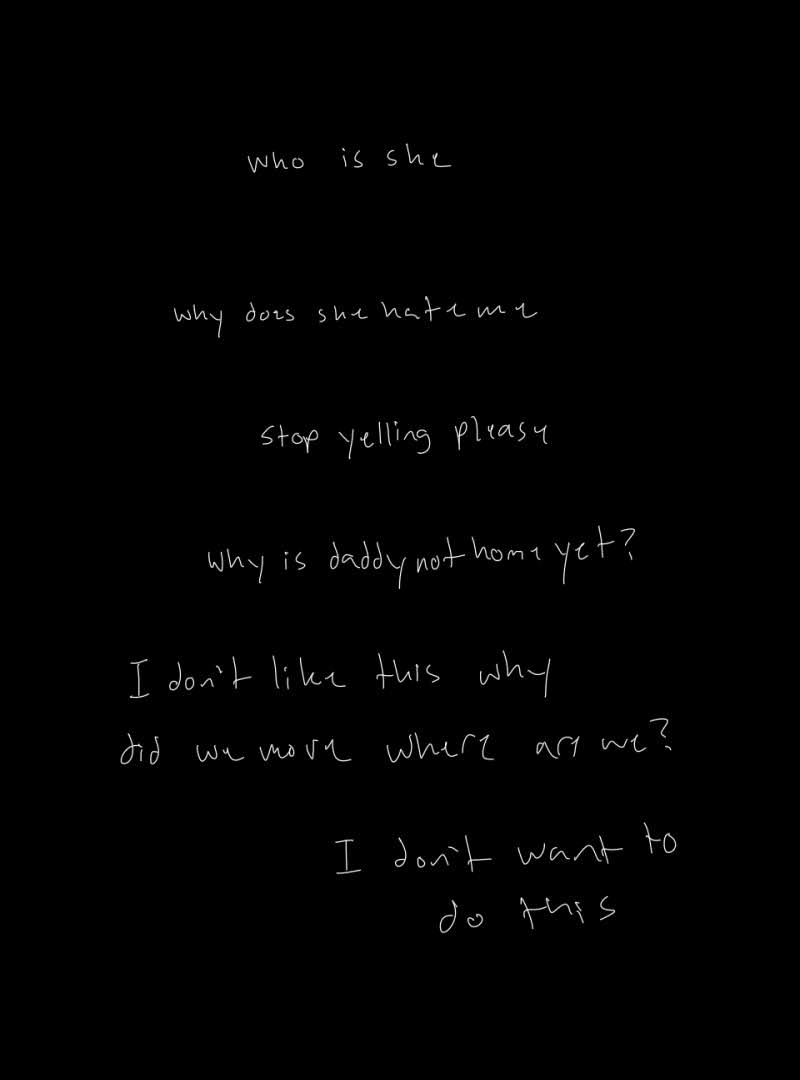 who is she
why does she hate me
stop yelling please
why is daddy not home yet?
I don't like this why
did we move where are we?
I don't want to
do this